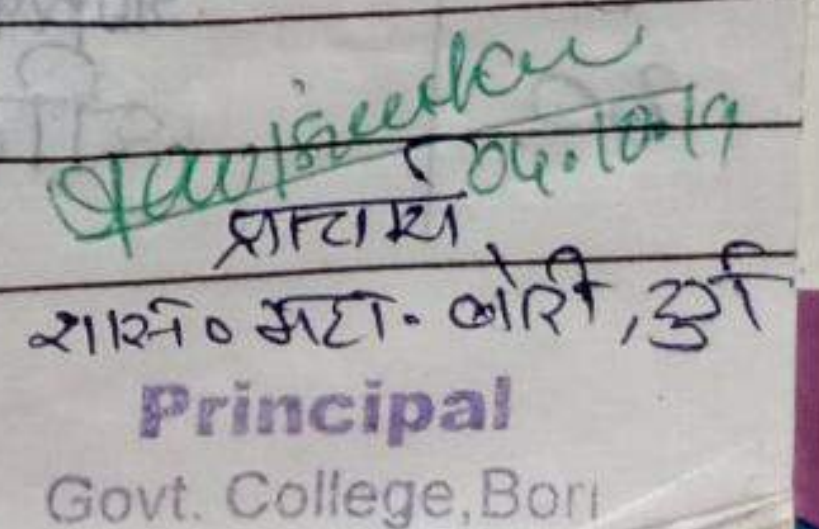 04.10.19
प्राचार्य
शास० महा. बोरी, दुर्ग
Principal
Govt. College, Bori